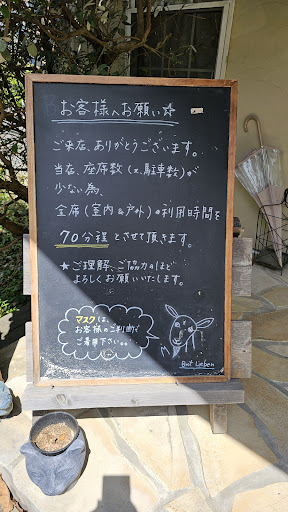 お客様へお願い☆
ご来店、ありがとうございます。
当店、座席数(又、駐車数)が
少ない為、
全席(室内&戸外)の利用時間を
70分程とさせて頂きます。
★ご理解、ご協力のほど
よろしくお願いいたします。
マスクは、
お客様のご判断で
ご着用下さい。
Brot Lieben